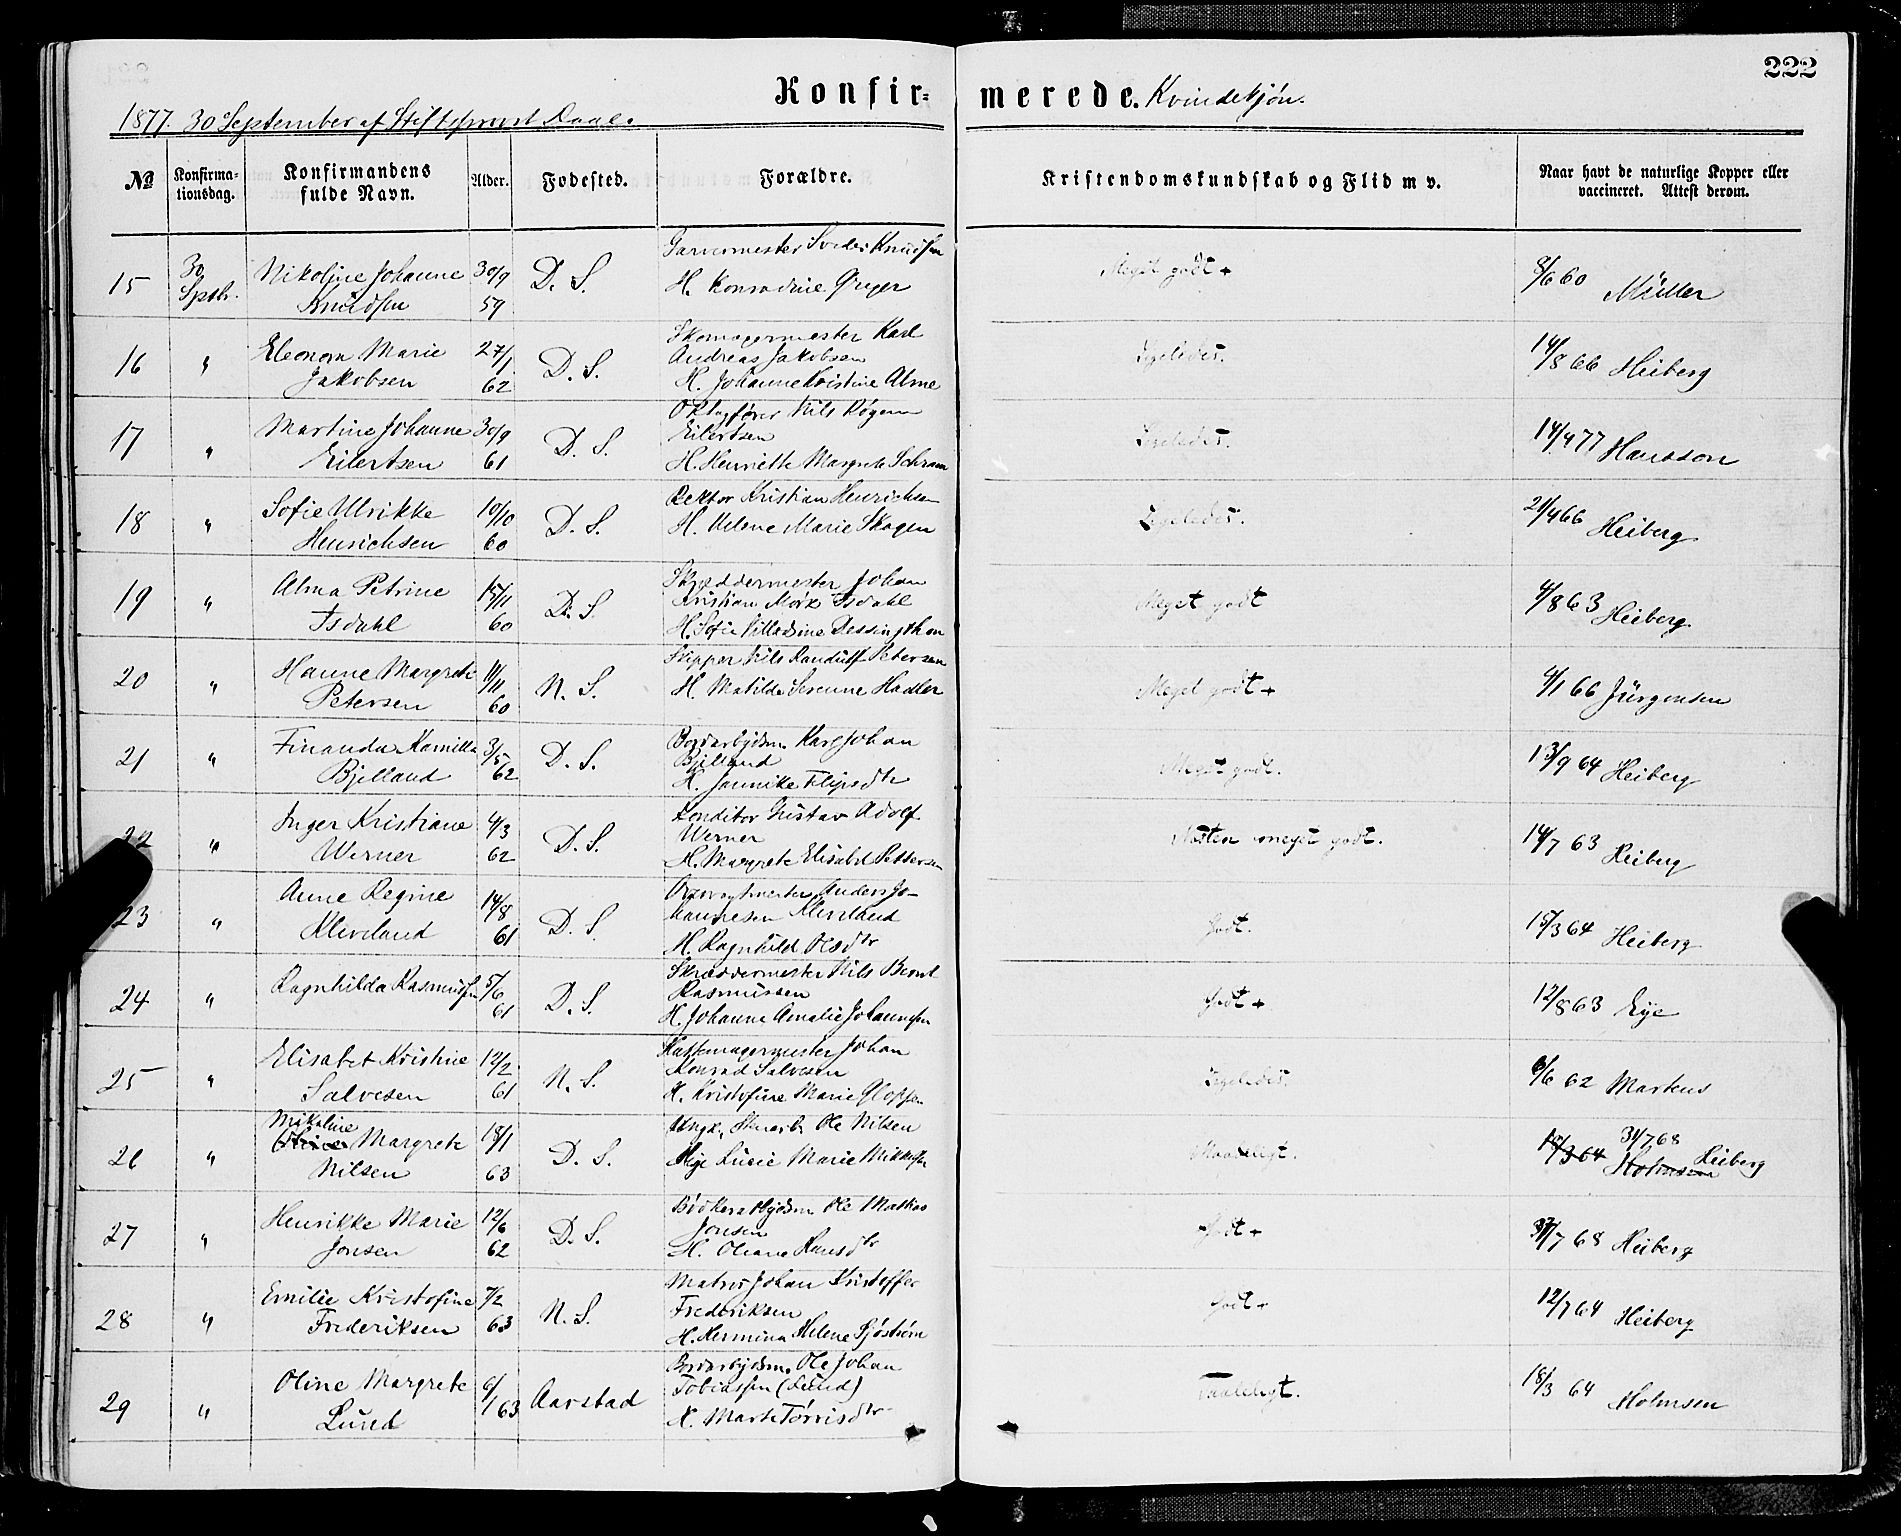 222
Konfirmerede. Kvindekjøn.
1877. 30 September af Stiftsprovst Daae.
№ Konfirmationsdag. Konfirmandens fulde Navn. Alder. Fødested. Forældre. Kristendomskundskab og Flid m v. Naar havt de naturlige Kopper eller vaccineret. Attest derom.
15 30 Sptbr. Nikoline Johanne Knudsen 30/9 59 D. S. Garvermester Knudsen
H. Konradine Meget godt + 8/6 60 Müller
16 " Eleonora Marie Jakobsen 27/1 62 D. S. Skomagermester Karl
Andreas Jakobsen
H. Johanne Kristine Alme Ligeledes. 14/8 66 Heiberg
17 " Martine Johanne Eilertsen 30/9 61 D. S. Nils
Eilertsen
H. Henriette Margrete Schram Ligeledes. 14/4 77 Hansson
18 " Sofie Ulrikke Henrichsen 10/10 60 D. S. Rektor Kristian Henrichsen
H. Helene Marie Skagen Ligeledes. 21/4 66 Heiberg
19 " Alma Petrine Isdahl 15/11 60 D. S. Skræddermester Johan
Kristian Mørk Isdahl
H. Sofie Villadsine Dessingthon Meget godt 4/8 63 Heiberg
20 " Hanne Margrete Petersen 11/11 60 N. S. Skipper Nils Randulf Petersen
H. Matilde Serenne Hadler Meget godt + 4/1 66 Jürgensen
21 " Finanda Kamilla Bjelland 3/5 62 D. S. Bordarbejdsm. Johan
Bjelland
H. Jannike Meget godt. 13/9 64 Heiberg
22 " Inger Kristiane Werner 4/3 62 D. S. Konditor Gustav Adolf
Werner
H. Margrete Elisabet Pettersen Næsten meget godt. 14/7 63 Heiberg
23 " Anne Regine Kleveland 14/8 61 D. S. Anders Johannesen Kleveland
H. Ragnhild Olsdtr Godt. 15/3 64 Heiberg
24 " Ragnhilda Rasmussen 5/6 61 D. S. Skræddermester Nils Bernt
Rasmussen
H. Johanne Amalie Johannesen Godt + 12/8 63 Eye
25 " Elisabet Kristine Salvesen 12/2 61 N. S. Hattemagermester Johan
Konrad Salvesen
H. Kristofine Marie Ligeledes. 6/6 62 Martens
26 " Mikaline Margrete Nilsen 18/1 63 D. S. Ungk. Ole Nilsen
Pige Lucie Marie Mikkelsen Maadeligt. 18/3 64 Holmsen 31/7 68 Heiberg
27 " Henrikke Marie Jonsen 12/6 62 D. S. Bødkerarbejdsm Ole Mathias
Jonsen
H. Oliane Hansdtr Godt + 31/7 68 Heiberg
28 " Emilie Kristofine Frederiksen 7/2 63 N. S. Matros Johan Kristoffer
Frederiksen
H. Hermina Helene Sjøstrøm Godt + 12/7 64 Heiberg
29 " Oline Margrete Lund 6/1 63 Aarstad Bordarbejdsm. Ole Johan
Tobiassen (Lund)
H. Marte Tørrisdtr Taaleligt. 18/3 64 Holmsen